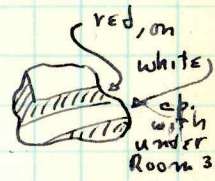 red, on
white,
cp.
with
under
Room 3